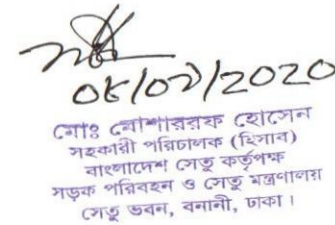 মোঃ মোশাররফ হোসেন
সহকারী পরিচালক (হিসাব)
বাংলাদেশ সেতু কর্তৃপক্ষ
সড়ক পরিবহন ও সেতু মন্ত্রণালয়
সেতু ভবন, বনানী, ঢাকা।